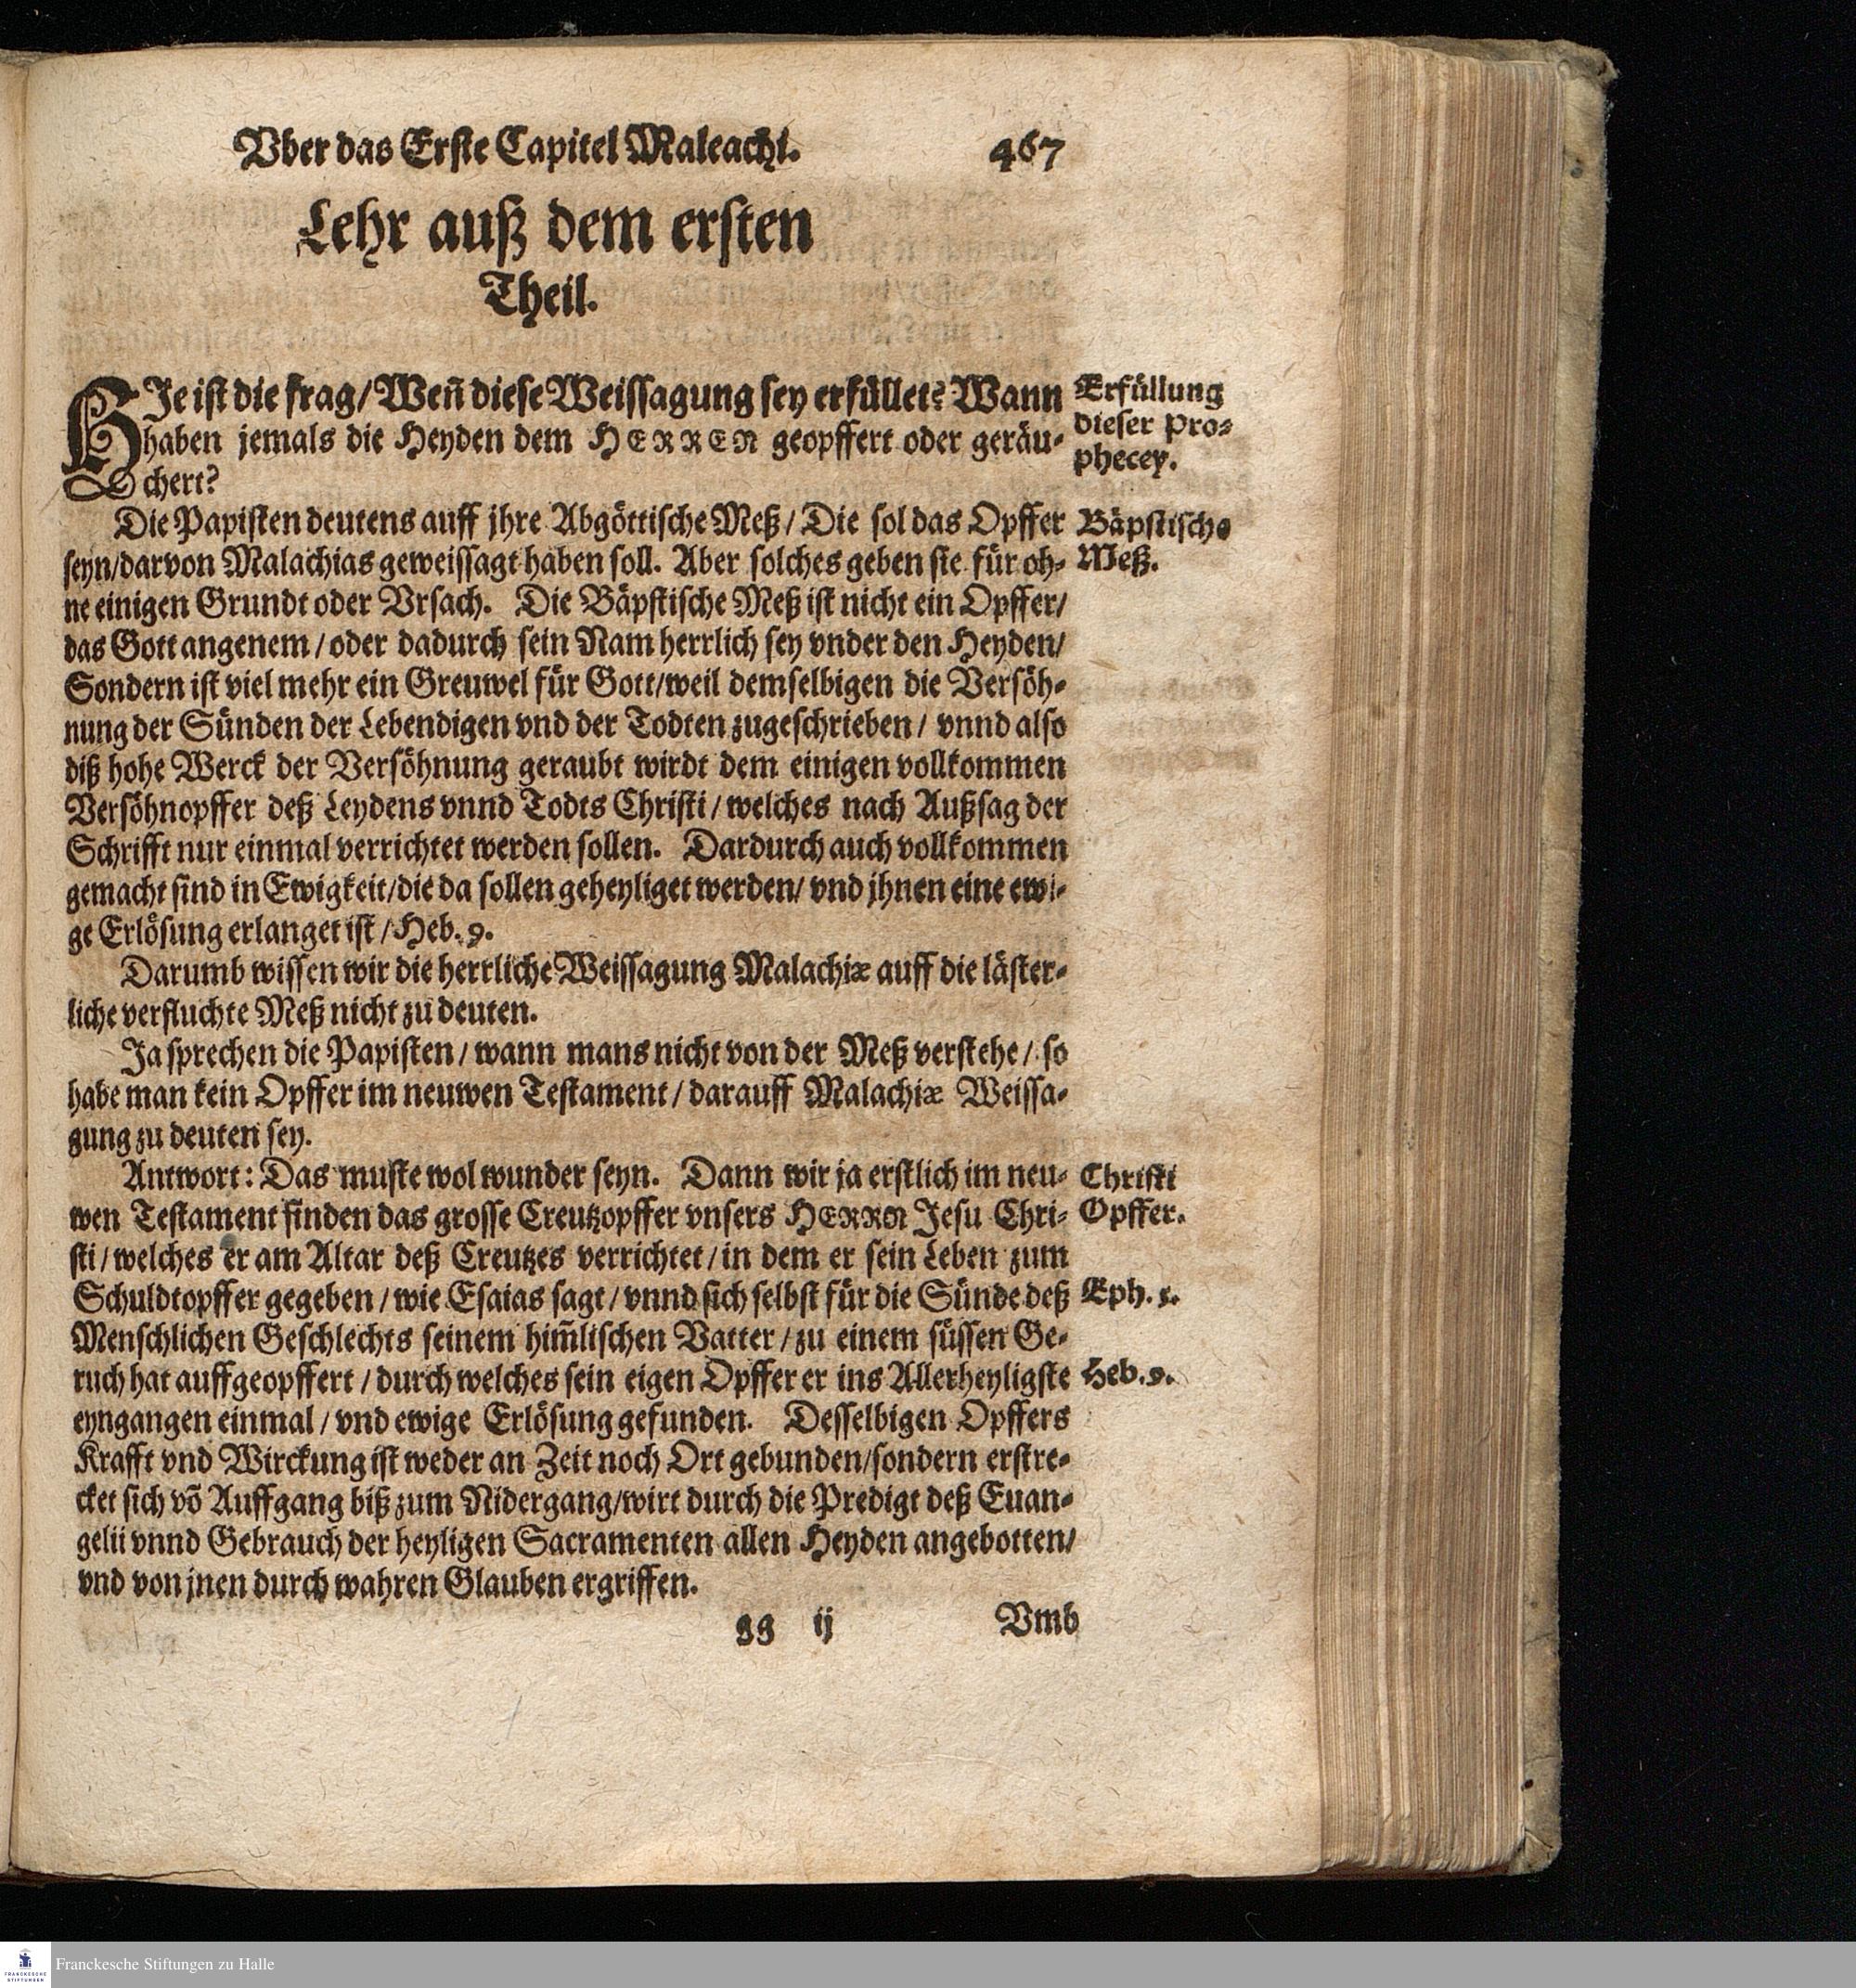 Vber das Erste Capitel Maleachi. 467
Lehr auß dem ersten
Theil.
HJe ist die frag/ Weñ diese Weissagung sey erfüllet? Wann
haben jemals die Heyden dem HERREN geopffert oder geräu-
chert?
Erfüllung
dieser Pro-
phecey.
Die Papisten deutens auff jhre Abgöttische Meß/ Die sol das Opffer
seyn/darvon Malachias geweissagt haben soll. Aber solches geben sie für oh-
ne einigen Grundt oder Vrsach. Die Bäpstische Meß ist nicht ein Opffer/
das Gott angenem/oder dadurch sein Nam herrlich sey vnder den Heyden/
Sondern ist viel mehr ein Greuwel für Gott/weil demselbigen die Versöh-
nung der Sünden der Lebendigen vnd der Todten zugeschrieben/ vnnd also
diß hohe Werck der Versöhnung geraubt wirdt dem einigen vollkommen
Versöhnopffer deß Leydens vnnd Todts Christi/welches nach Außsag der
Schrifft nur einmal verrichtet werden sollen. Dardurch auch vollkommen
gemacht sind in Ewigkeit/die da sollen geheyliget werden/ vnd jhnen eine ewi-
ge Erlösung erlanget ist/Heb. 9.
Bäpstische
Meß.
Darumb wissen wir die herrliche Weissagung Malachiæ auff die läster-
liche verfluchte Meß nicht zu deuten.
Ja sprechen die Papisten/wann mans nicht von der Meß verstehe/ so
habe man kein Opffer im neuwen Testament/darauff Malachiæ Weissa-
gung zu deuten sey.
Antwort: Das muste wol wunder seyn. Dann wir ja erstlich im neu-
wen Testament finden das grosse Creutzopffer vnsers HERRN Jesu Chri-
sti/welches er am Altar deß Creutzes verrichtet/in dem er sein Leben zum
Schuldtopffer gegeben/wie Esaias sagt/vnnd sich selbst für die Sünde deß
Menschlichen Geschlechts seinem him̃lischen Vatter/zu einem süssen Ge-
ruch hat auffgeopffert/durch welches sein eigen Opffer er ins Allerheyligste
eyngangen einmal/vnd ewige Erlösung gefunden. Desselbigen Opffers
Krafft vnd Wirckung ist weder an Zeit noch Ort gebunden/sondern erstre-
cket sich võ Auffgang biß zum Nidergang/wirt durch die Predigt deß Euan-
gelii vnnd Gebrauch der heyligen Sacramenten allen Heyden angebotten/
vnd von jnen durch wahren Glauben ergriffen.
Christi
Opffer.
Eph. 5.
Heb. 9.
gg ij Vmb
FRANCKESCHE
STIFTUNGEN
Franckesche Stiftungen zu Halle